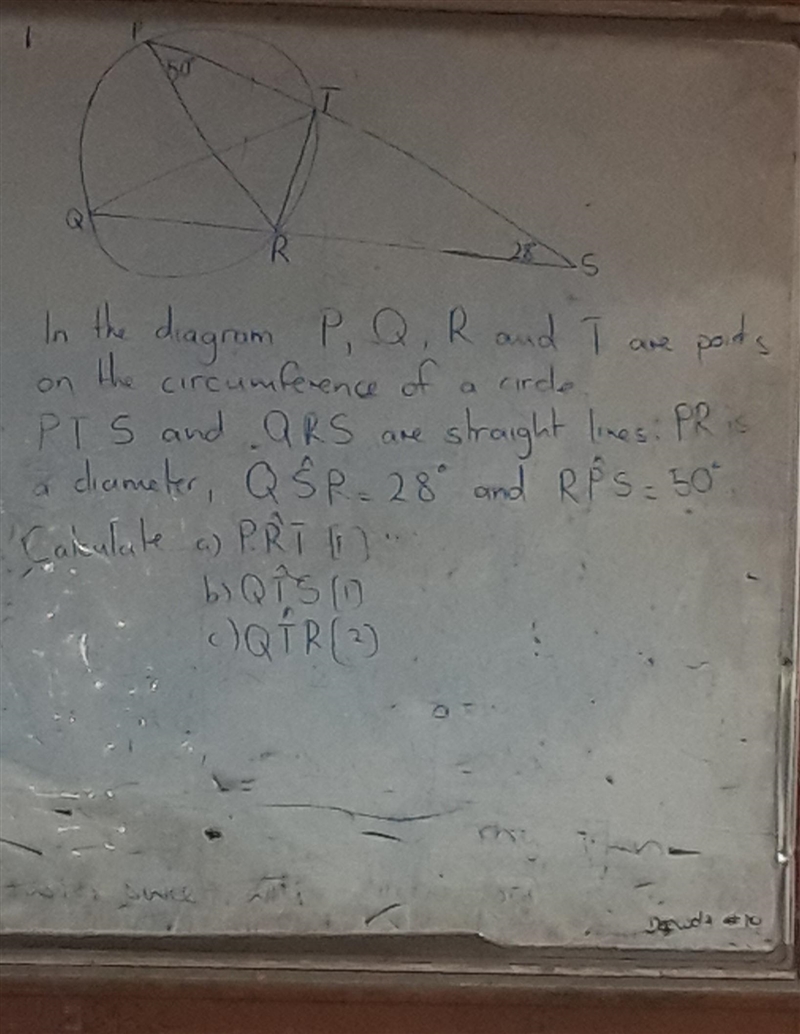 1
P
50°
T
Q
R
28°
S
In the diagram P, Q, R and T are points
on the circumference of a circle.
PTS and QRS are straight lines: PR is
a diameter, QŜR = 28° and RP̂S = 50°
Calculate a) PR̂T (1)
b) QT̂S (1)
c) QT̂R (2)